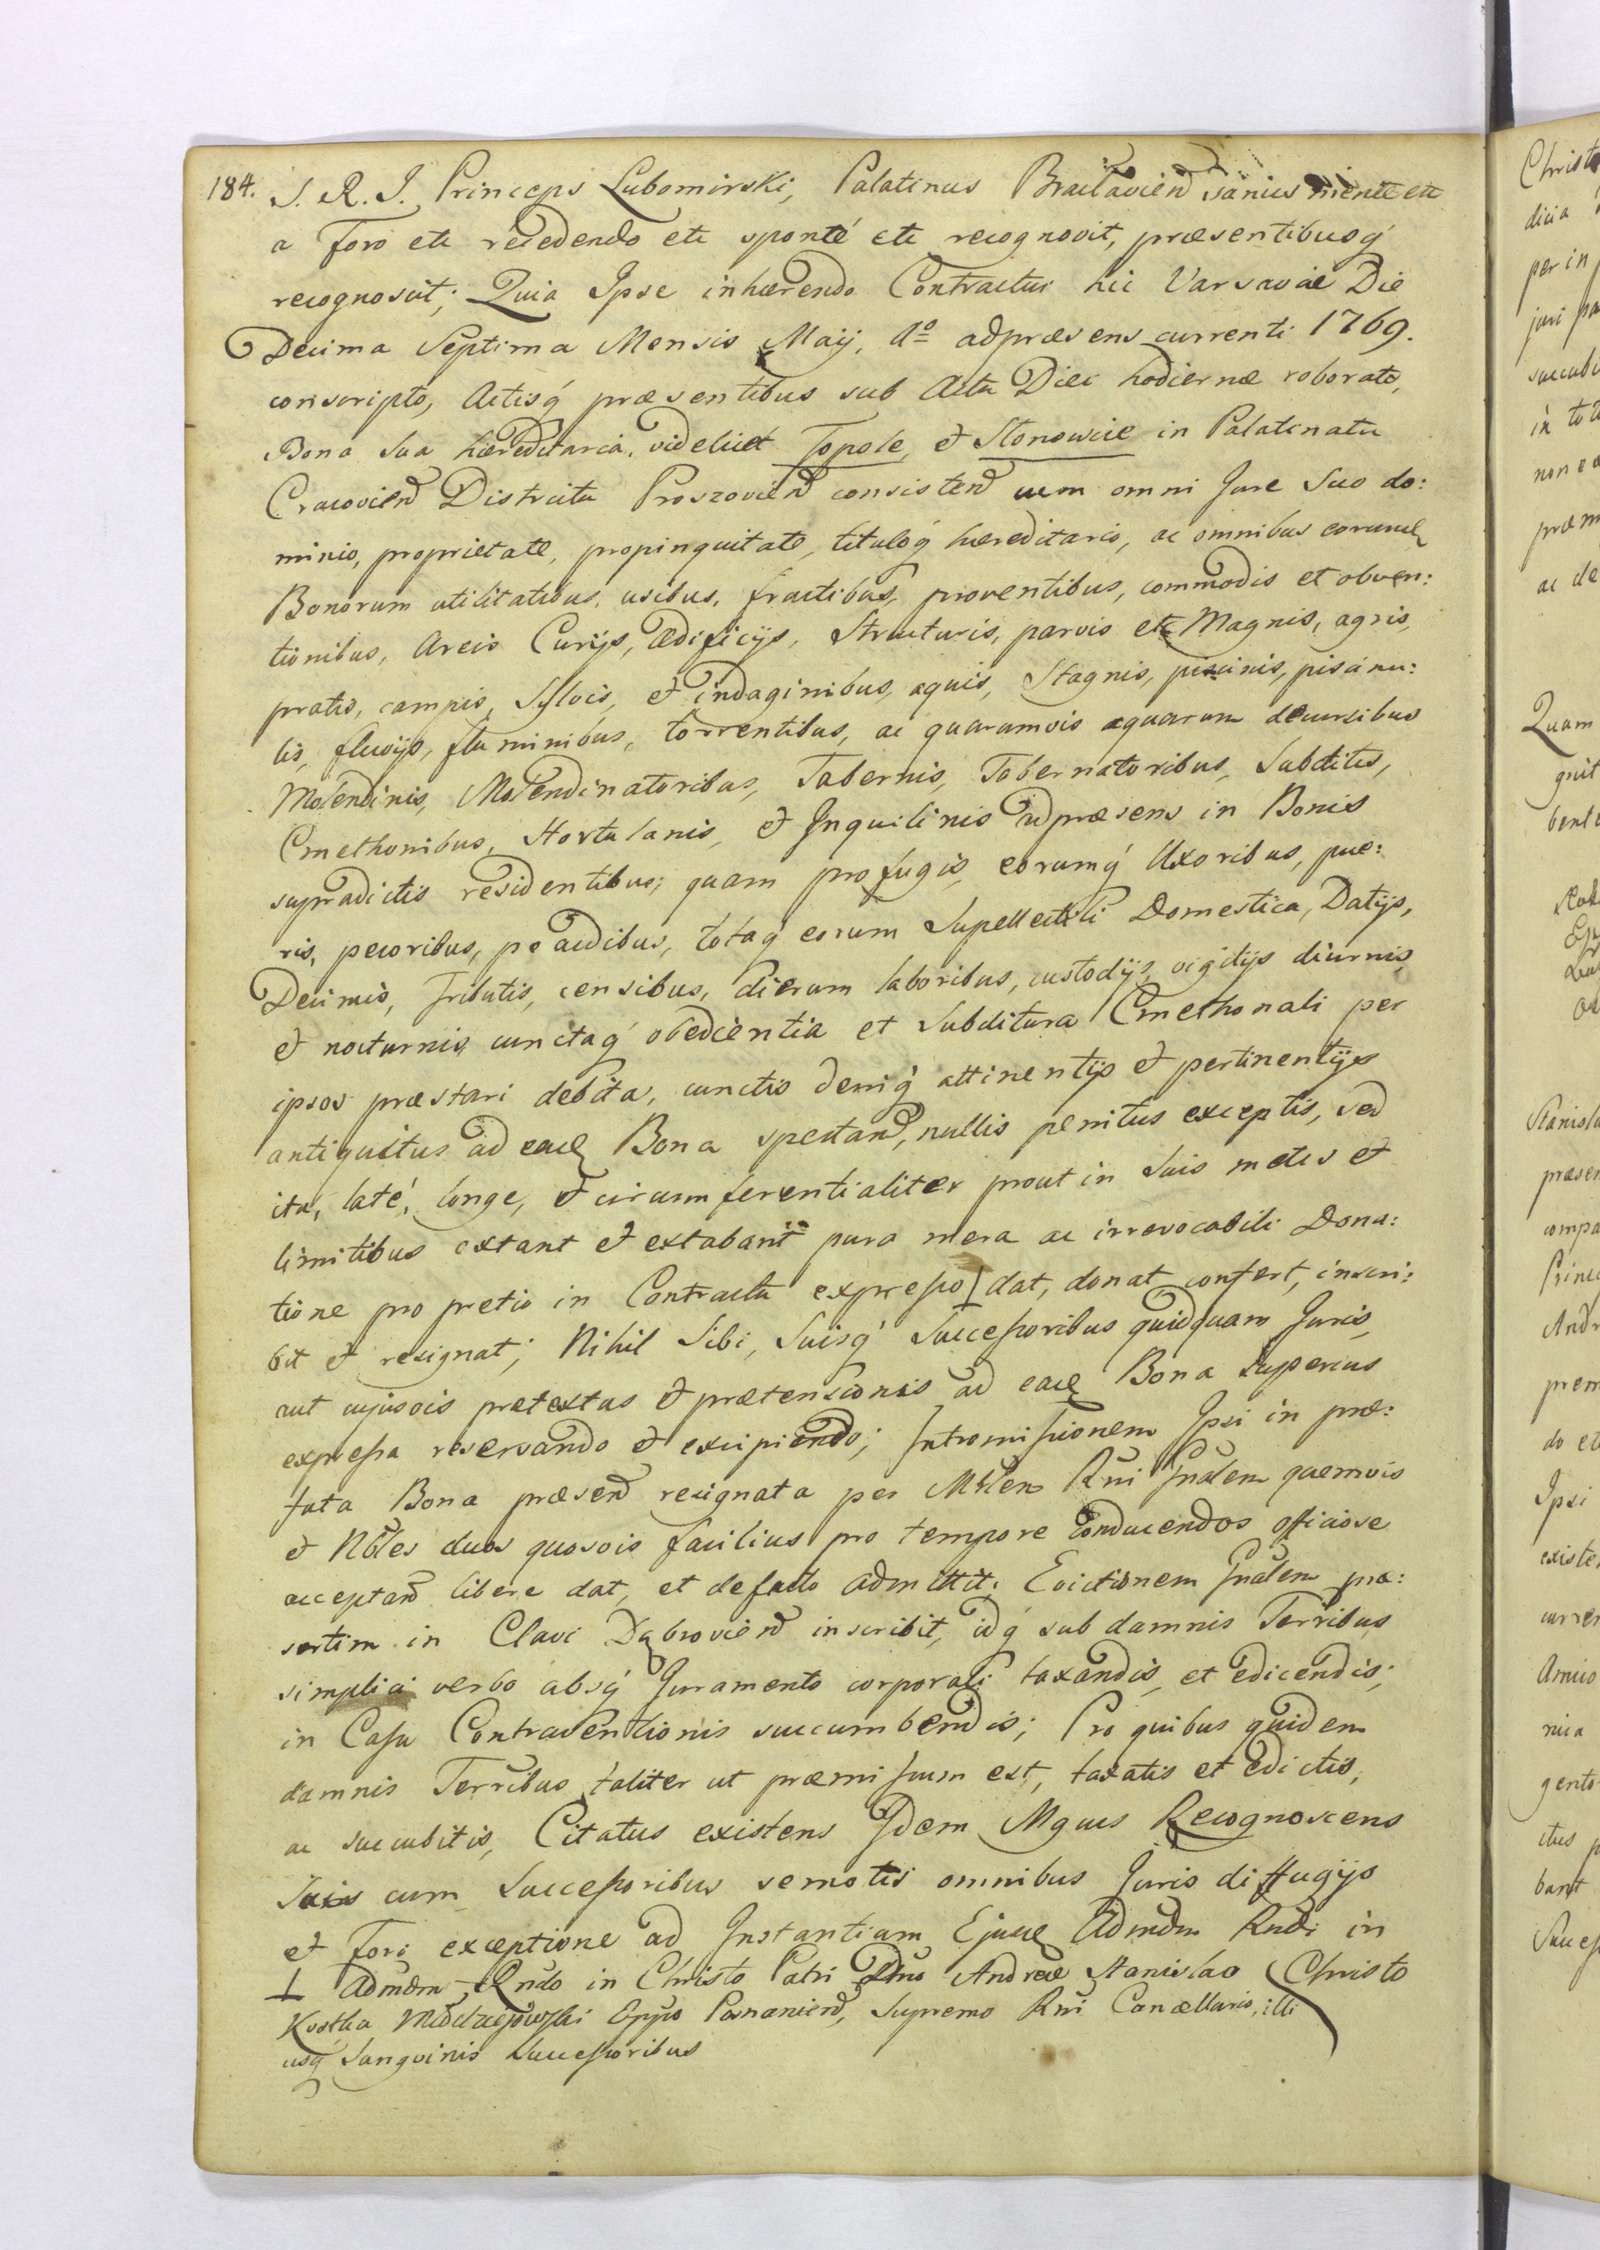 184. S. R. I. Princeps Lubomirski, Palatinus Braclavien̄ sanus mente etc
a Foro etc recedendo etc sponté etc recognovit, præsentibusq́
recognoscit; Quia Ipse inhærendo Contractui hic Varsaviæ Die
Decima Septima Mensis Maij, Aº adpræsens currenti 1769.
conscripto, Actisq́ præsentibus sub Actu Diei hodiernæ roborato,
Bona Sua hæreditaria, videlicet Topole, et Stonowice in Palatinatu
Cracovien̄ Districtu Proszovien̄ consisten̄ cum omni Jure Suo do:
minio, proprietate, propinquitate, tituloq́ hæreditario, ac omnibus eorund
Bonorum utilitatibus, usibus, fructibus, proventibus, commodis et obven:
tionibus, Areis Curijs, Ædificijs, Structuris, parvis etc Magnis, agris,
pratis, campis, Sylvis, et indaginibus, aquis, Stagnis, piscinis, piscinu:
lis, fluvijs, fluminibus, torrentibus, ac quarumvis aquarum decursibus
Molendinis, Molendinatoribus, Tabernis, Tabernatoribus, Subditis,
Cmethonibus, Hortulanis, et Inquilinis adpræsens in Bonis
supradictis residentibus; quam profugis, eorumq́ Uxoribus, pue:
ris, pecoribus, pecudibus, totaq́ eorum Supellectili Domestica, Datijs,
Decimis, Tributis, censibus, dierum laboribus, custodijs, vigilijs diurnis,
et nocturnis cunctaq́ obedientia et Subditura Cmethonali per
ipsos præstari debita, cunctis deniq́ attinentijs et pertinentijs
antiquitus ad ead Bona spectan̄, nullis penitus exceptis, sed
ita, laté, longe, et circumferentialiter prout in Suis metis et
limitibus extant et extabant pura mera ac irrevocabili Dona:
tione pro pretio in Contractu expresso ⊥ dat, donat confert, inscri:
bit et resignat; Nihil Sibi, Suisq́ Successoribus quidquam Juris,
aut cujusvis prætextus et prætensionis ad ead Bona superius
expressa reservando et excipiendo; Intromissionem Ipsi in præ:
fata Bona præsen̄ resignata per Mtrlem Rn̄i Gn̄alem quemvis
et Nob̄les duos quosvis facilius pro tempore conducendos officiose
acceptan̄ libere dat, et defacto admittit; Evictionem Gn̄alem præ:
sertim in Clavi Dąbrovien̄ inscribit, idq́ sub damnis Terribus
simplici verbo absq́ Juramento corporali taxandis, et edicendis;
in Casu Contraventionis succumbendis; Pro quibus quidem
damnis Terribus, taliter ut præmissum est, taxatis et edictis,
ac succubitis, Citatus existens Idem Mgcus Recognoscens
Suis cum Successoribus semotis omnibus Juris diffugijs
et Fori exceptione ad Instantiam Ejusd Admdm Rndi in
Christo
⊥ Admdm Rndo in Christo Patri Dn̄o Andreæ Stanislao
Kostka Młodziejowski Eppo Posnanien̄, Supremo Rn̄i Cancellario, illi
usq́ Sanguinis Successoribus